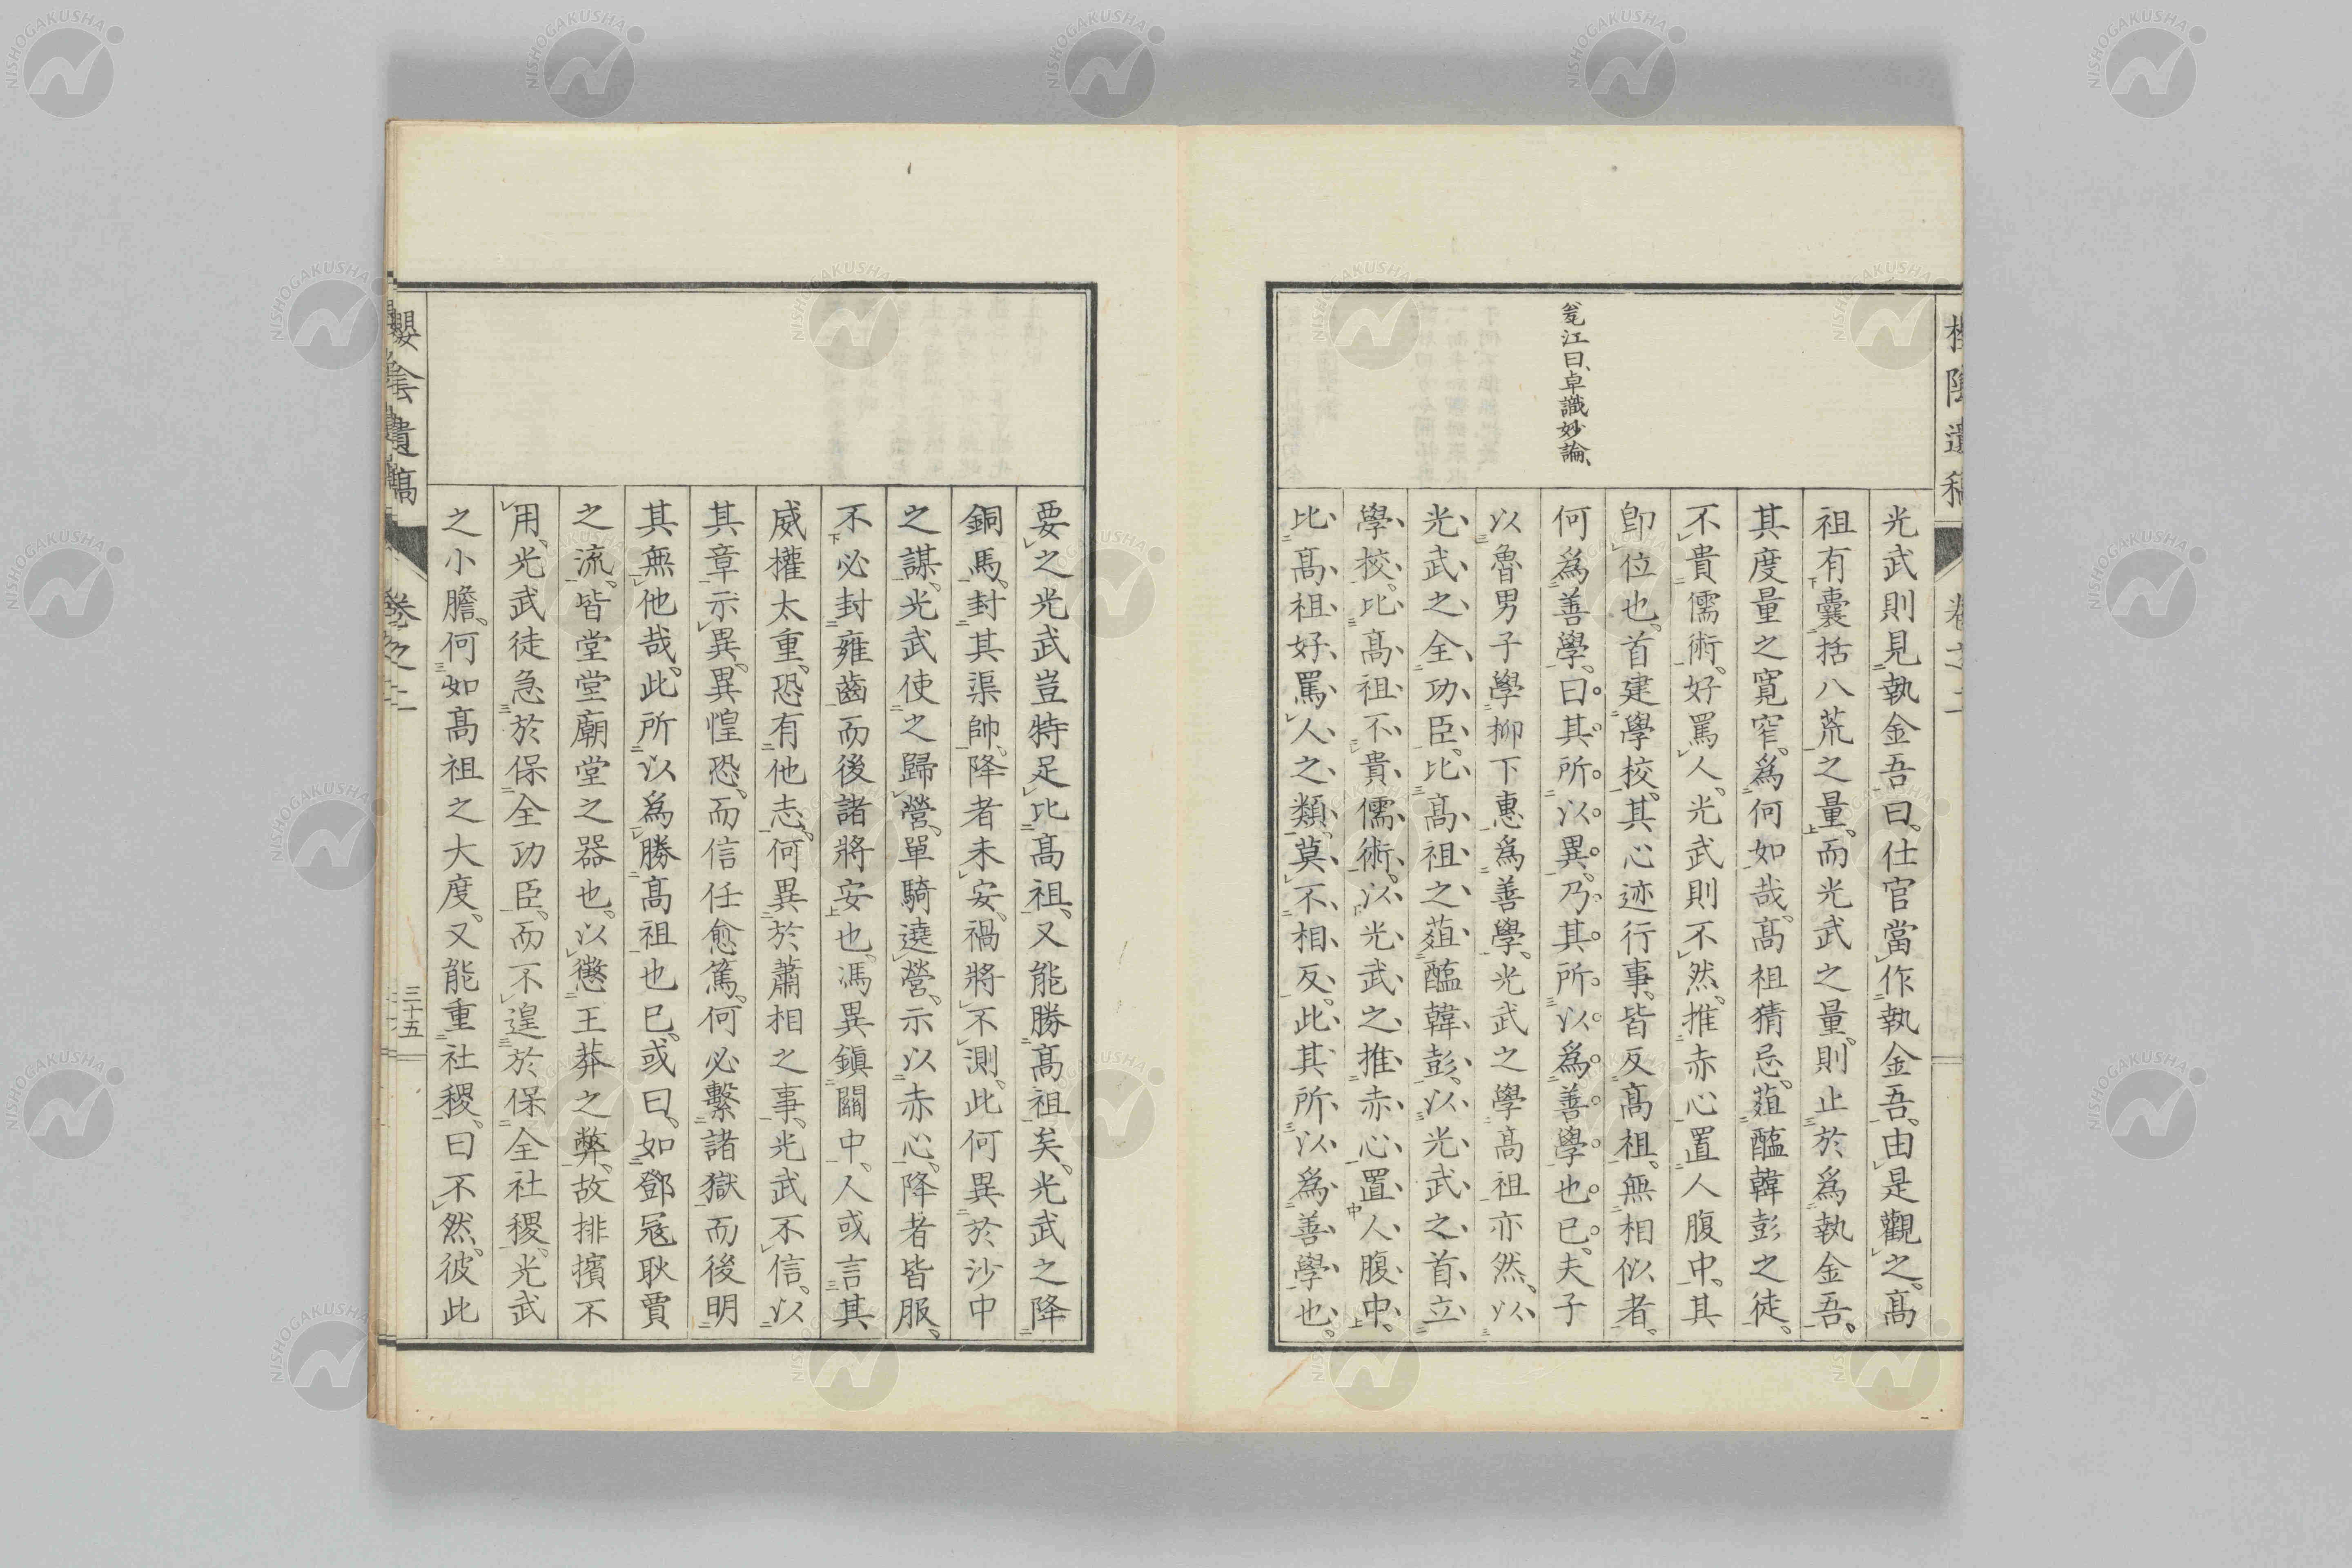 櫻陰遺稿 卷之二
光武則見執金吾曰。仕官當作執金吾。由是觀之。高
祖有囊括八荒之量。而光武之量。則止於爲執金吾。
其度量之寬窄。爲何如哉。高祖猜忌。葅醢韓彭之徒。
不貴儒術。好罵人。光武則不然。推赤心置人腹中。其
卽位也。首建學校。其心迹行事。皆反高祖。無相似者。
何爲善學。曰其所以異。乃其所以爲善學也已。夫子
以魯男子學柳下惠爲善學。光武之學高祖亦然。以
光武之全功臣。比高祖之葅醢韓彭。以光武之首立
學校。比高祖不貴儒術。以光武之推赤心置人腹中。
比高祖好罵人之類。莫不相反。此其所以爲善學也。
甕江曰、卓識妙論、
要之光武豈特足比高祖。又能勝高祖矣。光武之降
銅馬。封其渠帥。降者未安。禍將不測。此何異於沙中
之謀。光武使之歸營。單騎遶營。示以赤心。降者皆服。
不必封雍齒而後諸將安也。馮異鎭關中。人或言其
威權太重。恐有他志。何異於蕭相之事。光武不信。以
其章示異。異惶恐。而信任愈篤。何必繫諸獄而後明
其無他哉。此所以爲勝高祖也已。或曰。如鄧寇耿賈
之流。皆堂堂廟堂之器也。以懲王莽之弊。故排擯不
用。光武徒急於保全功臣。而不遑於保全社稷。光武
之小膽。何如高祖之大度。又能重社稷。曰不然。彼此
櫻陰遺稿 卷之二 三十五
NISHOGAKUSHA